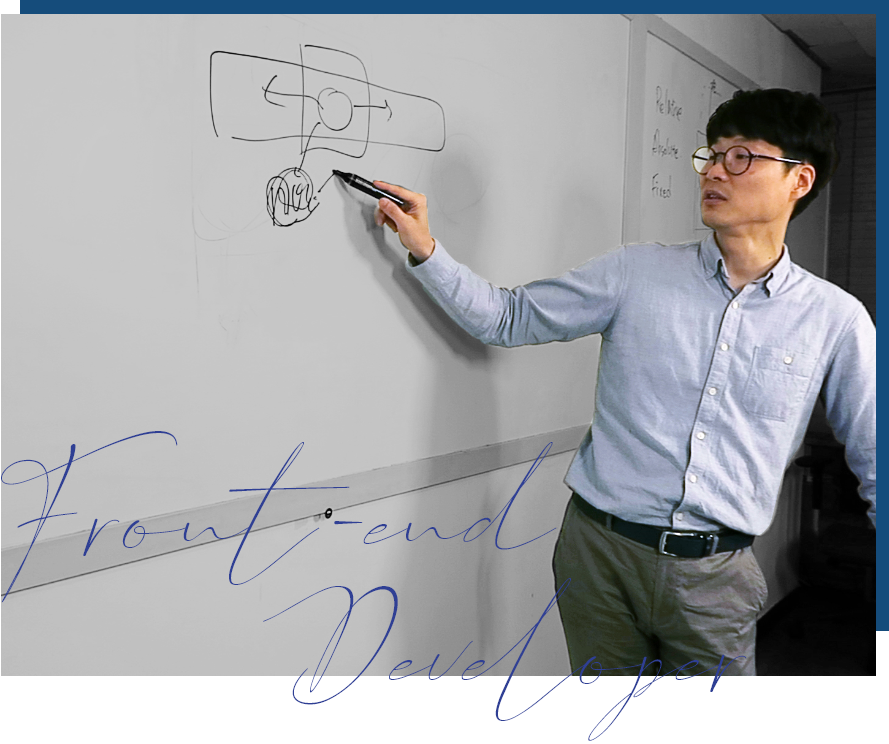 Relative
Absolute
Fixed
Front-end
Developer